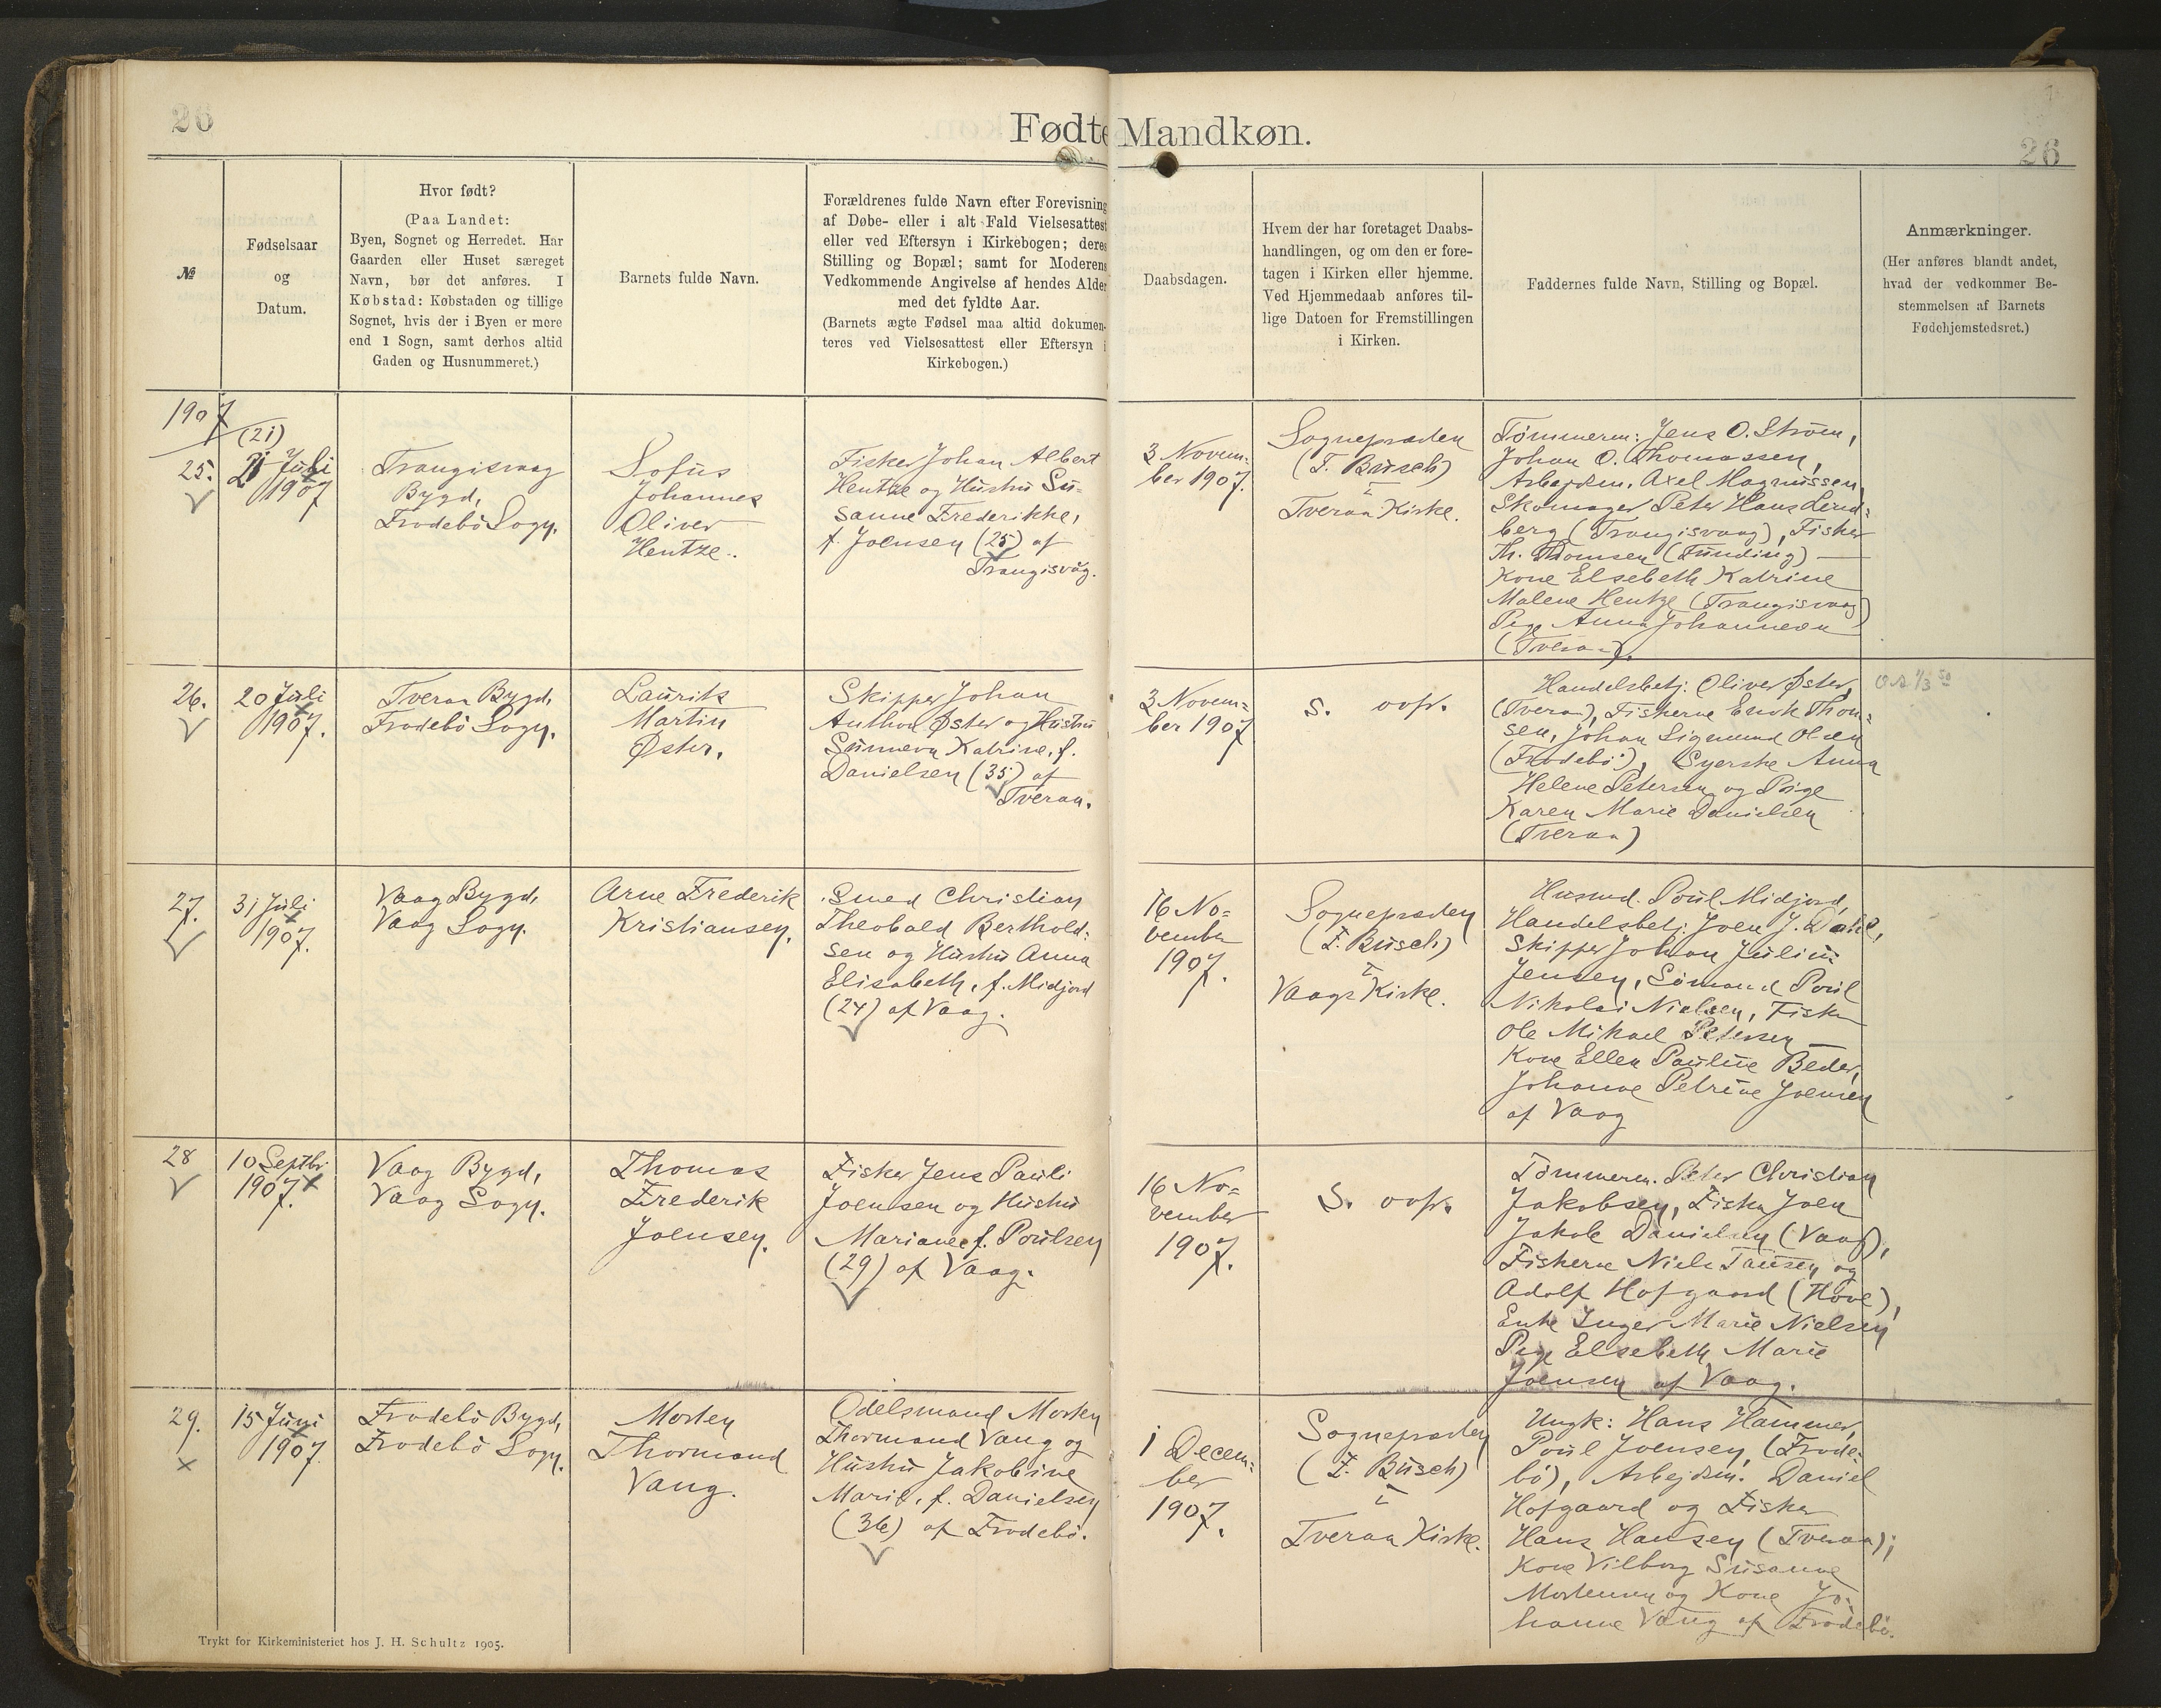 26
Fødte Mandkøn.
26
№
Fødselsaar
og
Datum.
Hvor født?
(Paa Landet:
Byen, Sognet og Herredet. Har
Gaarden eller Huset særeget
Navn, bør det anføres. I
Købstad: Købstaden og tillige
Sognet, hvis der i Byen er mere
end 1 Sogn, samt derhos altid
Gaden og Husnummeret.)
Barnets fulde Navn.
Forældrenes fulde Navn efter Forevisning
af Døbe- eller i alt Fald Vielsesattest
eller ved Eftersyn i Kirkebogen; deres
Stilling og Bopæl; samt for Moderens
Vedkommende Angivelse af hendes Alder
med det fyldte Aar.
(Barnets ægte Fødsel maa altid dokumen-
teres ved Vielsesattest eller Eftersyn i
Kirkebogen.)
Daabsdagen.
Hvem der har foretaget Daabs-
handlingen, og om den er fore-
tagen i Kirken eller hjemme.
Ved Hjemmedaab anføres til-
lige Datoen for Fremstillingen
i Kirken.
Faddernes fulde Navn, Stilling og Bopæl.
Anmærkninger.
(Her anføres blandt andet,
hvad der vedkommer Be-
stemmelsen af Barnets
Fødehjemstedsret.)
1907
25.
(21)
21 Juli
1907
Trangisvaag
Bygd,
Frodebö Sogn.
Sofus
Johannes
Oliver
Hentze.
Fisker Johan Albert
Hentze og Hustru Su=
sanne Frederikke,
f. Joensen (25) af
Trangisvåg.
3 Novem=
ber 1907.
Sognepræsten
(F. Busch)
i
Tveraa Kirke.
Tömmerm: Jens O. Ström,
Johan O. Thomassen,
Arbejdsm. Axel Magnussen,
Skomager Peter Hans Lind=
berg (Trangisvaag), Fisker
Th. Thomsen (Funding)
Kone Elsebeth Katrine
Malene Hentze (Trangisvaag)
Pige Anna Johannesen
(Tveraa).
26.
20 Juli
1907.
Tveraa Bygd,
Frodebö Sogn.
Laurits
Martin
Øster.
Skipper Johan
Anthon Øster og Hustru
Sunneva Katrine, f.
Danielsen (35) af
Tveraa.
3 Novem=
ber 1907
S. ovfr.
Handelsbetj. Oliver Øster,
(Tveraa), Fiskerne Enok Thom=
sen, Johan Sigmund Olsen
(Frodebö), Syerske Anna
Helene Petersen og Pige
Karen Marie Danielsen
(Tveraa)
27.
31 Juli
1907.
Vaag Bygd,
Vaag Sogn.
Arne Frederik
Kristiansen.
Smed Christian
Theobald Berthold=
sen og Hustru Anna
Elisabeth, f. Midjord
(24) af Vaag.
16 No=
vember
1907.
Sognepræsten
(F. Busch)
i
Vaags Kirke.
Husmd. Poul Midjord,
Handelsbetj. Joen J. Dahl,
Skipper Johan Julius
Jensen, Sömand Poul
Nikolai Nielsen, Fisker
Ole Mikael Petersen
Kone Ellen Pauline Beder,
Johanne Petrine Joensen
af Vaag
28
10 Septbr
1907.
Vaag Bygd,
Vaag Sogn.
Thomas
Frederik
Joensen.
Fisker Jens Pauli
Joensen og Hustru
Mariane f. Poulsen
(29) af Vaag.
16 No=
vember
1907.
S. ovfr.
Tömmerm. Peter Christian
Jakobsen, Fisker Joen
Jakob Danielsen (Vaag),
Fiskerne Niels Tausen og
Adolf Hofgaard (Hove),
Enke Inger Marie Nielsen
Pige Elsebeth Marie
Joensen af Vaag.
29.
15 Juni
1907.
Frodebö Bygd,
Frodebö Sogn.
Morten
Thormond
Vang.
Odelsmand Morten
Thormond Vang og
Hustru Jakobine
Marie, f. Danielsen
(36) af Frodebö.
1 Decem=
ber
1907.
Sognepræsten
(F. Busch)
i
Tveraa Kirke.
Ungk: Hans Hammer,
Poul Joensen, (Frode=
bö), Arbejdsm. Daniel
Hofgaard og Fisker
Hans Hansen (Tveraa);
Kone Vilborg Susanne
Mortensen og Kone Jo=
hanne Vang af Frodebö.
Trykt for Kirkeministeriet hos J. H. Schultz 1905.